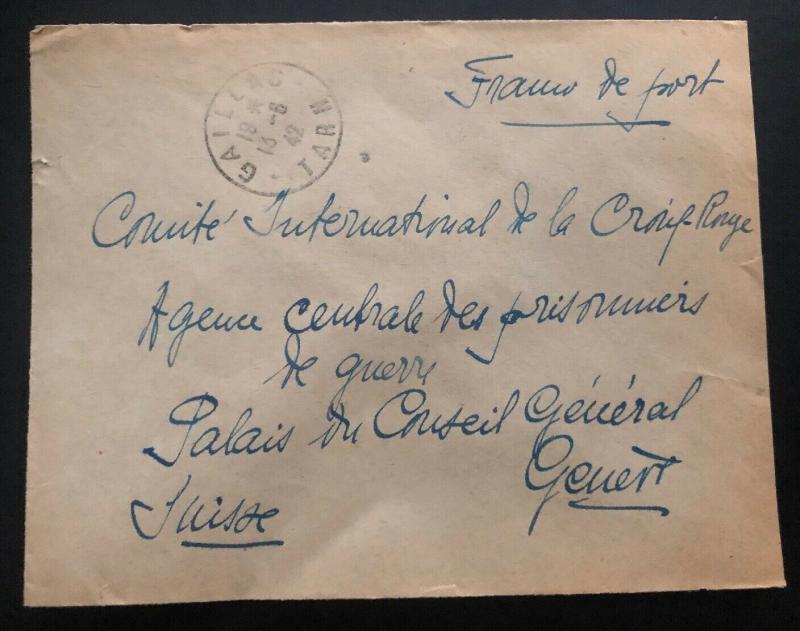 GAILLAC - TARN
18 *
13 -6
42
Franco de port
Comité International de la Croix-Rouge
Agence centrale des prisonniers
de guerre
Palais du Conseil Général
Genève
Suisse